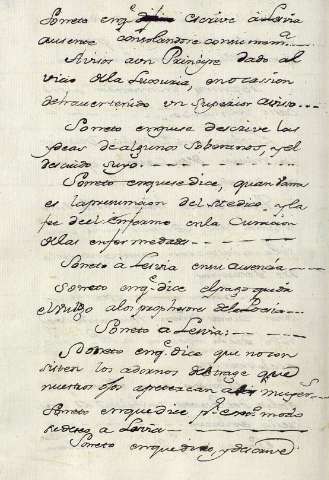 Soneto enq.e escrive à Lesvia
ausente consolandose con su mem.a
Aviso a un Principe dado al
vicio dela Luxuria, en ocasion
de haver tenido un superior aviso
Soneto enque se descrive las
ydeas de algunos Soberanos, y el
descuido suyo
Soneto enque se dice, quan vana
es la presumpcion del Medico, y la
fee del Enfermo en la Curacion
delas enfermedades
Soneto à Lesvia en su ausencia
Soneto enq.e dice el pago que dà
el vulgo a los prophesores dela Poesia
Soneto à Lesvia
Soneto enq.e dice que no con
sisten los adornos del trage que
nuestros ojos aprecian mugeres
Soneto enque dice p.r modo
a Lesvia
Soneto enque dice, y descrive